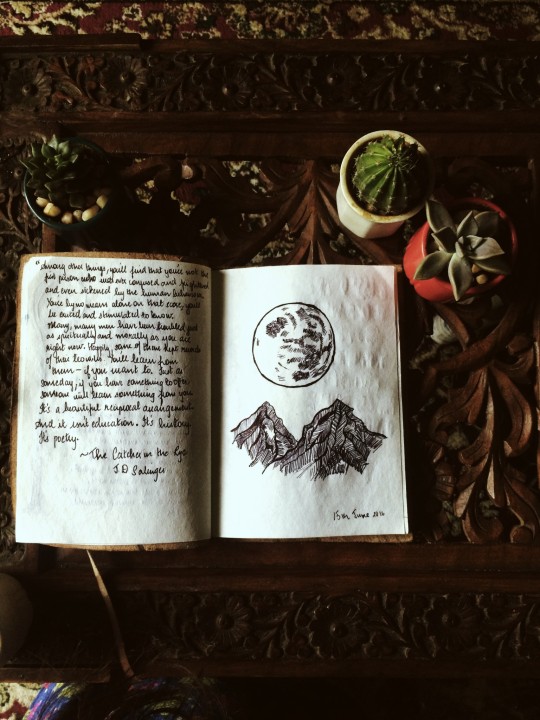 "Among other things, you'll find that you're not the
first person who was ever confused and frightened
and even sickened by the human Behaviour.
You're by no means alone on that score, you'll
be excited and stimulated to know.
Many, many men have been troubled just
as spiritually and morally as you are
right now. Happily some of them kept records
of their You'll learn from
them - if you want to. Just as
someday, if you have something to offer,
someone will learn something from you.
It's a beautiful reciprocal arrangement.
And it isn't education. It's history.
It's poetry.
~The Catcher in the Rye
J D Salinger
15th June